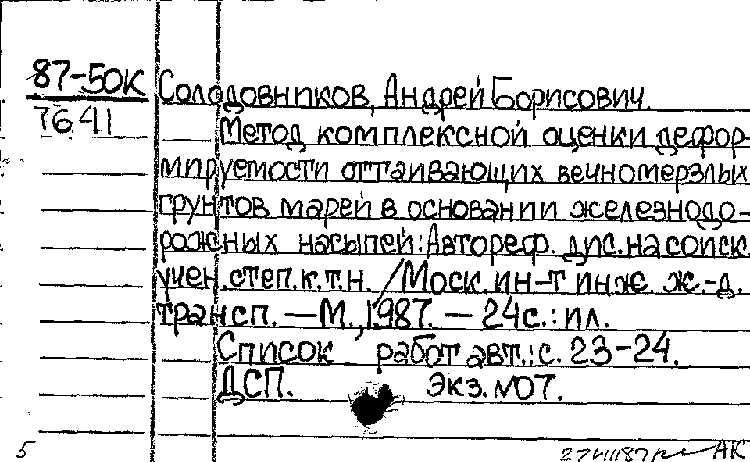 87-50К
7641
Солодовников, Андрей Борисович.
Метод комплексной оценки дефор-
мируемости оттаивающих вечномерзлых
грунтов марей в основании железнодо-
рожных насыпей: Автореф. дис. на соиск.
учен. степ. к.т.н. /Моск. ин-т инж. ж.-д.
трансп. — М., 1987. — 24с.: ил.
Список работ авт.: с. 23-24.
ДСП. Экз. №07.
5
АК